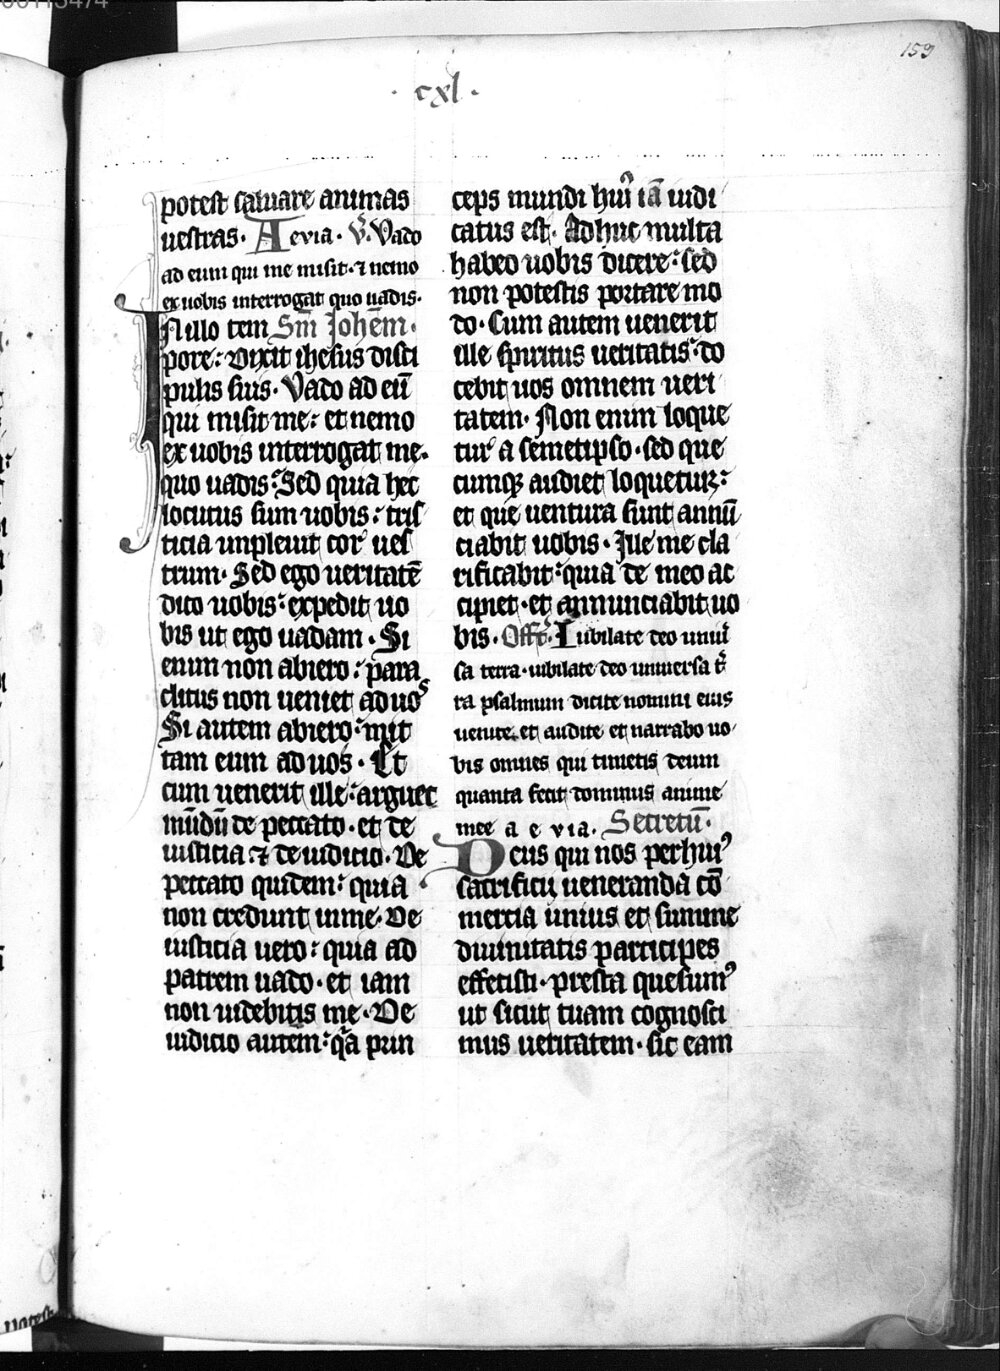 159
· cxl ·
potest saluare animas
uestras · Aevia · V̊. Vado
ad eum qui me misit · ⁊ nemo
ex uobis interrogat quo uadis ·
In illo tem Sm̄ Joh̄em ·
pore : Dixit ihesus disci
pulis suis · Vado ad eū
qui misit me : et nemo
ex uobis interrogat me ·
quo uadis : Sed quia hec
locutus sum uobis : tris
ticia impleuit cor ues
trum · Sed ego ueritatē
dico uobis : expedit uo
bis ut ego uadam · Si
enim non abiero : para
clitus non ueniet ad uos
Si autem abiero : mit
tam eum ad uos · Et
cum uenerit ille : arguet
mūdū de peccato · et de
iusticia : ⁊ de iudicio · De
peccato quidem : quia
non credunt in me · De
iusticia uero : quia ad
patrem uado · et iam
non uidebitis me · De
iudicio autem : qa prin
ceps mundi huiꝰ iā iudi
catus est · Adhuc multa
habeo uobis dicere : sed
non potestis portare mo
do · Cum autem uenerit
ille spiritus ueritatis : do
cebit uos omnem ueri
tatem · Non enim loque
tur a semetipso · sed que
cumqꝫ audiet loquetur :
et que uentura sunt annū
ciabit uobis · Ille me cla
rificabit : quia de meo ac
cipiet · et annunciabit uo
bis · Offr̄. Iubilate deo uniu
sa terra · iubilate deo uniuersa t̄
ra psalmum dicite nomini eius
uenite et audite et narrabo uo
bis omnes qui timetis deum
quanta fecit dominus anime
mee a e via. Secretū ·
Deus qui nos per huiꝰ
sacrificij ueneranda cō
mercia unius et summe
diuinitatis participes
effecisti · presta quesumꝰ
ut sicut tuam cognosci
mus ueritatem · sic eam